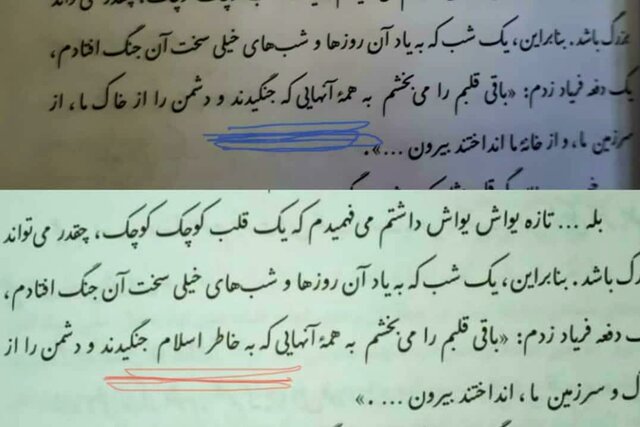 بزرگ باشد. بنابراین، یک شب که به یاد آن روزها و شب‌های خیلی سخت آن جنگ افتادم،
یک دفعه فریاد زدم: «باقی قلبم را می‌بخشم به همهٔ آنهایی که جنگیدند و دشمن را از خاک ما، از
سرزمین ما، و از خانهٔ ما انداختند بیرون ...».
بله ... تازه یواش یواش داشتم می‌فهمیدم که یک قلب کوچک کوچک، چقدر می‌تواند
باشد. بنابراین، یک شب که به یاد آن روزها و شب‌های خیلی سخت آن جنگ افتادم،
دفعه فریاد زدم: «باقی قلبم را می‌بخشم به همهٔ آنهایی که به خاطر اسلام جنگیدند و دشمن را از
و سرزمین ما، انداختند بیرون ... .»